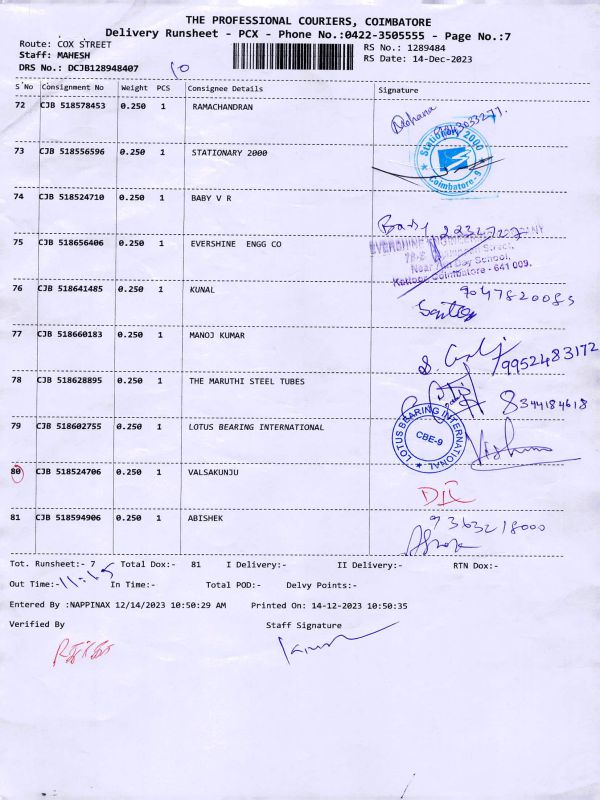 THE PROFESSIONAL COURIERS, COIMBATORE
Delivery Runsheet - PCX - Phone No.:0422-3505555 - Page No.:7
Route: COX STREET
RS No.: 1289484
Staff: MAHESH
RS Date: 14-Dec-2023
DRS No.: DCJB128948407
10
S No Consignment No Weight PCS Consignee Details Signature
72 CJB 518578453 0.250 1 RAMACHANDRAN
73 CJB 518556596 0.250 1 STATIONARY 2000
Stationary 2000
Coimbatore-9
74 CJB 518524710 0.250 1 BABY V R
Baby
75 CJB 518656406 0.250 1 EVERSHINE ENGG CO
Coimbatore - 641 009.
76 CJB 518641485 0.250 1 KUNAL
9047820085
77 CJB 518660183 0.250 1 MANOJ KUMAR
9952483172
78 CJB 518628895 0.250 1 THE MARUTHI STEEL TUBES
8344184618
79 CJB 518602755 0.250 1 LOTUS BEARING INTERNATIONAL
LOTUS BEARING INTERNATIONAL
CBE-9
80 CJB 518524706 0.250 1 VALSAKUNJU
81 CJB 518594906 0.250 1 ABISHEK
9363218000
Tot. Runsheet:- 7 Total Dox:- 81 I Delivery:- II Delivery:- RTN Dox:-
Out Time:-11-15 In Time:- Total POD:- Delvy Points:-
Entered By :NAPPINAX 12/14/2023 10:50:29 AM Printed On: 14-12-2023 10:50:35
Verified By Staff Signature